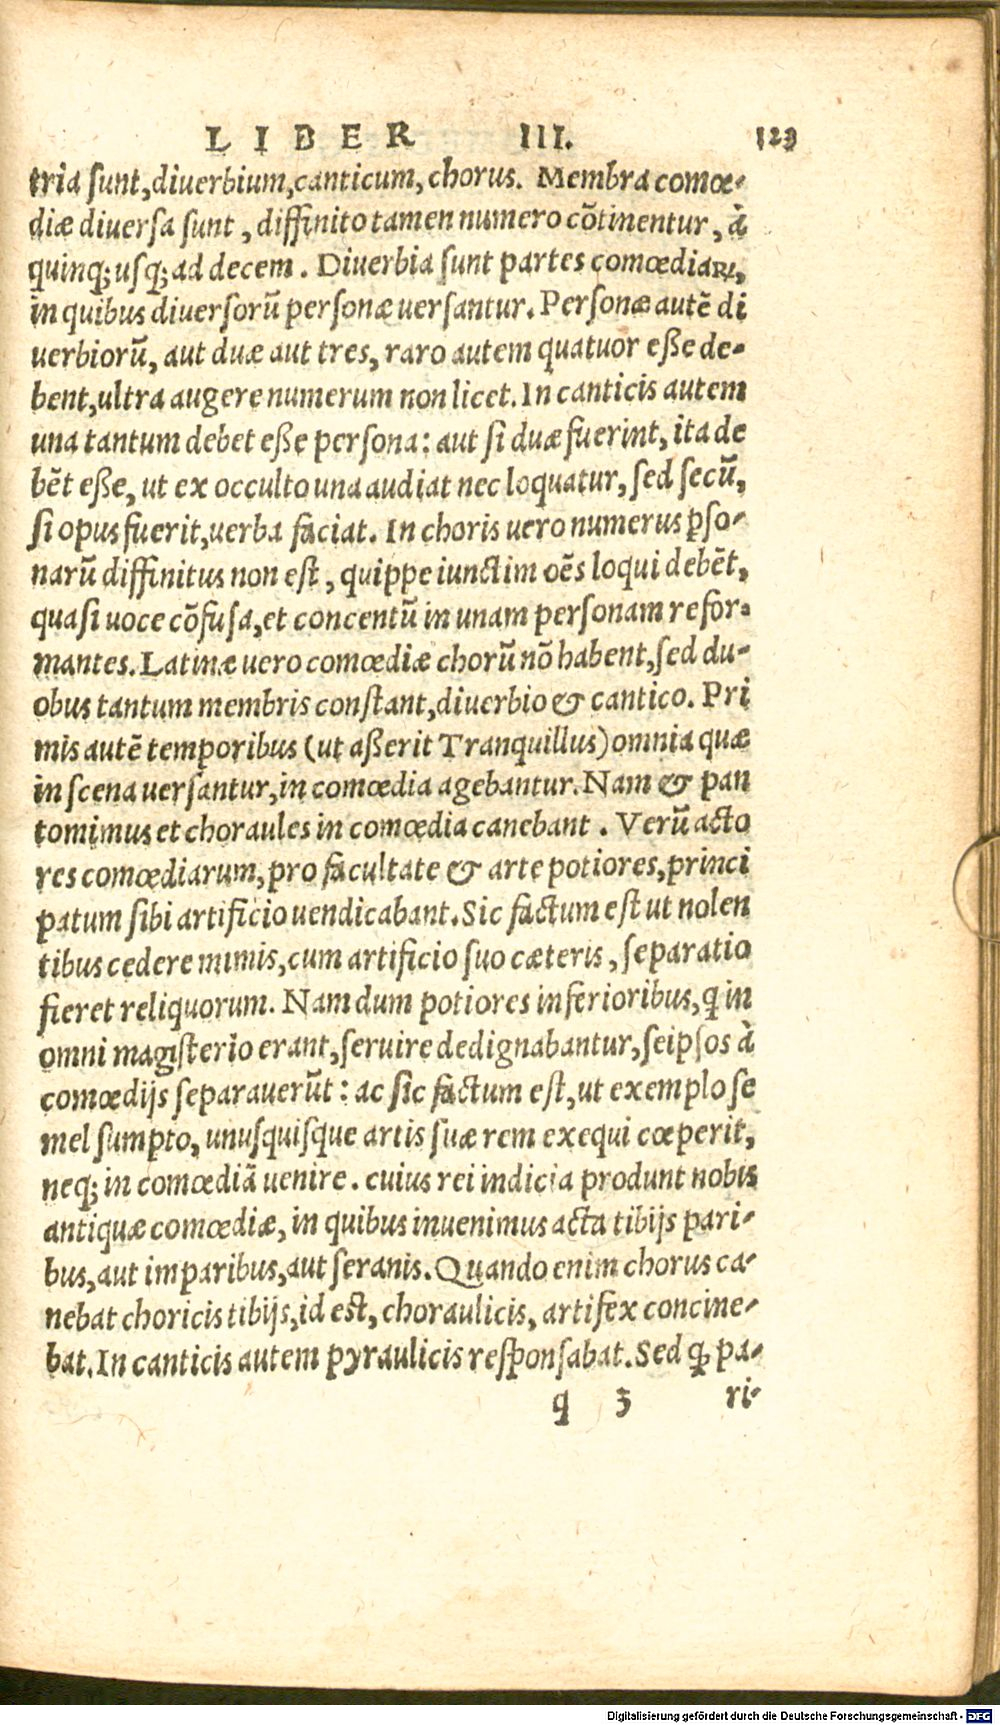 LIBER III. 123
tria sunt, diuerbium, canticum, chorus. Membra comœ-
diæ diuersa sunt, diffinito tamen numero cõtinentur, à
quinq; usq; ad decem. Diuerbia sunt partes comœdiaꝝ,
in quibus diuersorũ personæ uersantur. Personæ autẽ di
uerbiorũ, aut duæ aut tres, raro autem quatuor eße de-
bent, ultra augere numerum non licet. In canticis autem
una tantum debet eße persona: aut si duæ fuerint, ita de
bẽt eße, ut ex occulto una audiat nec loquatur, sed secũ,
si opus fuerit, uerba faciat. In choris uero numerus ꝑso-
narũ diffinitus non est, quippe iunctim oẽs loqui debẽt,
quasi uoce cõfusa, et concentũ in unam personam refor-
mantes. Latinæ uero comœdiæ chorũ nõ habent, sed du-
obus tantum membris constant, diuerbio & cantico. Pri
mis autẽ temporibus (ut aßerit Tranquillus) omnia quæ
in scena uersantur, in comœdia agebantur. Nam & pan
tomimus et choraules in comœdia canebant. Verũ acto
res comœdiarum, pro facultate & arte potiores, princi
patum sibi artificio uendicabant. Sic factum est ut nolen
tibus cedere mimis, cum artificio suo cæteris, separatio
fieret reliquorum. Nam dum potiores inferioribus, ꝗ in
omni magisterio erant, seruire dedignabantur, seipsos à
comœdijs separauerũt: ac sic factum est, ut exemplo se
mel sumpto, unusquisque artis suæ rem exequi cœperit,
neq; in comœdiã uenire. cuius rei indicia produnt nobis
antiquæ comœdiæ, in quibus inuenimus acta tibijs pari-
bus, aut imparibus, aut seranis. Quando enim chorus ca-
nebat choricis tibijs, id est, choraulicis, artifex concine-
bat. In canticis autem pyraulicis responsabat. Sed ꝙ pa-
q 3 ri-
Digitalisierung gefördert durch die Deutsche Forschungsgemeinschaft - DFG